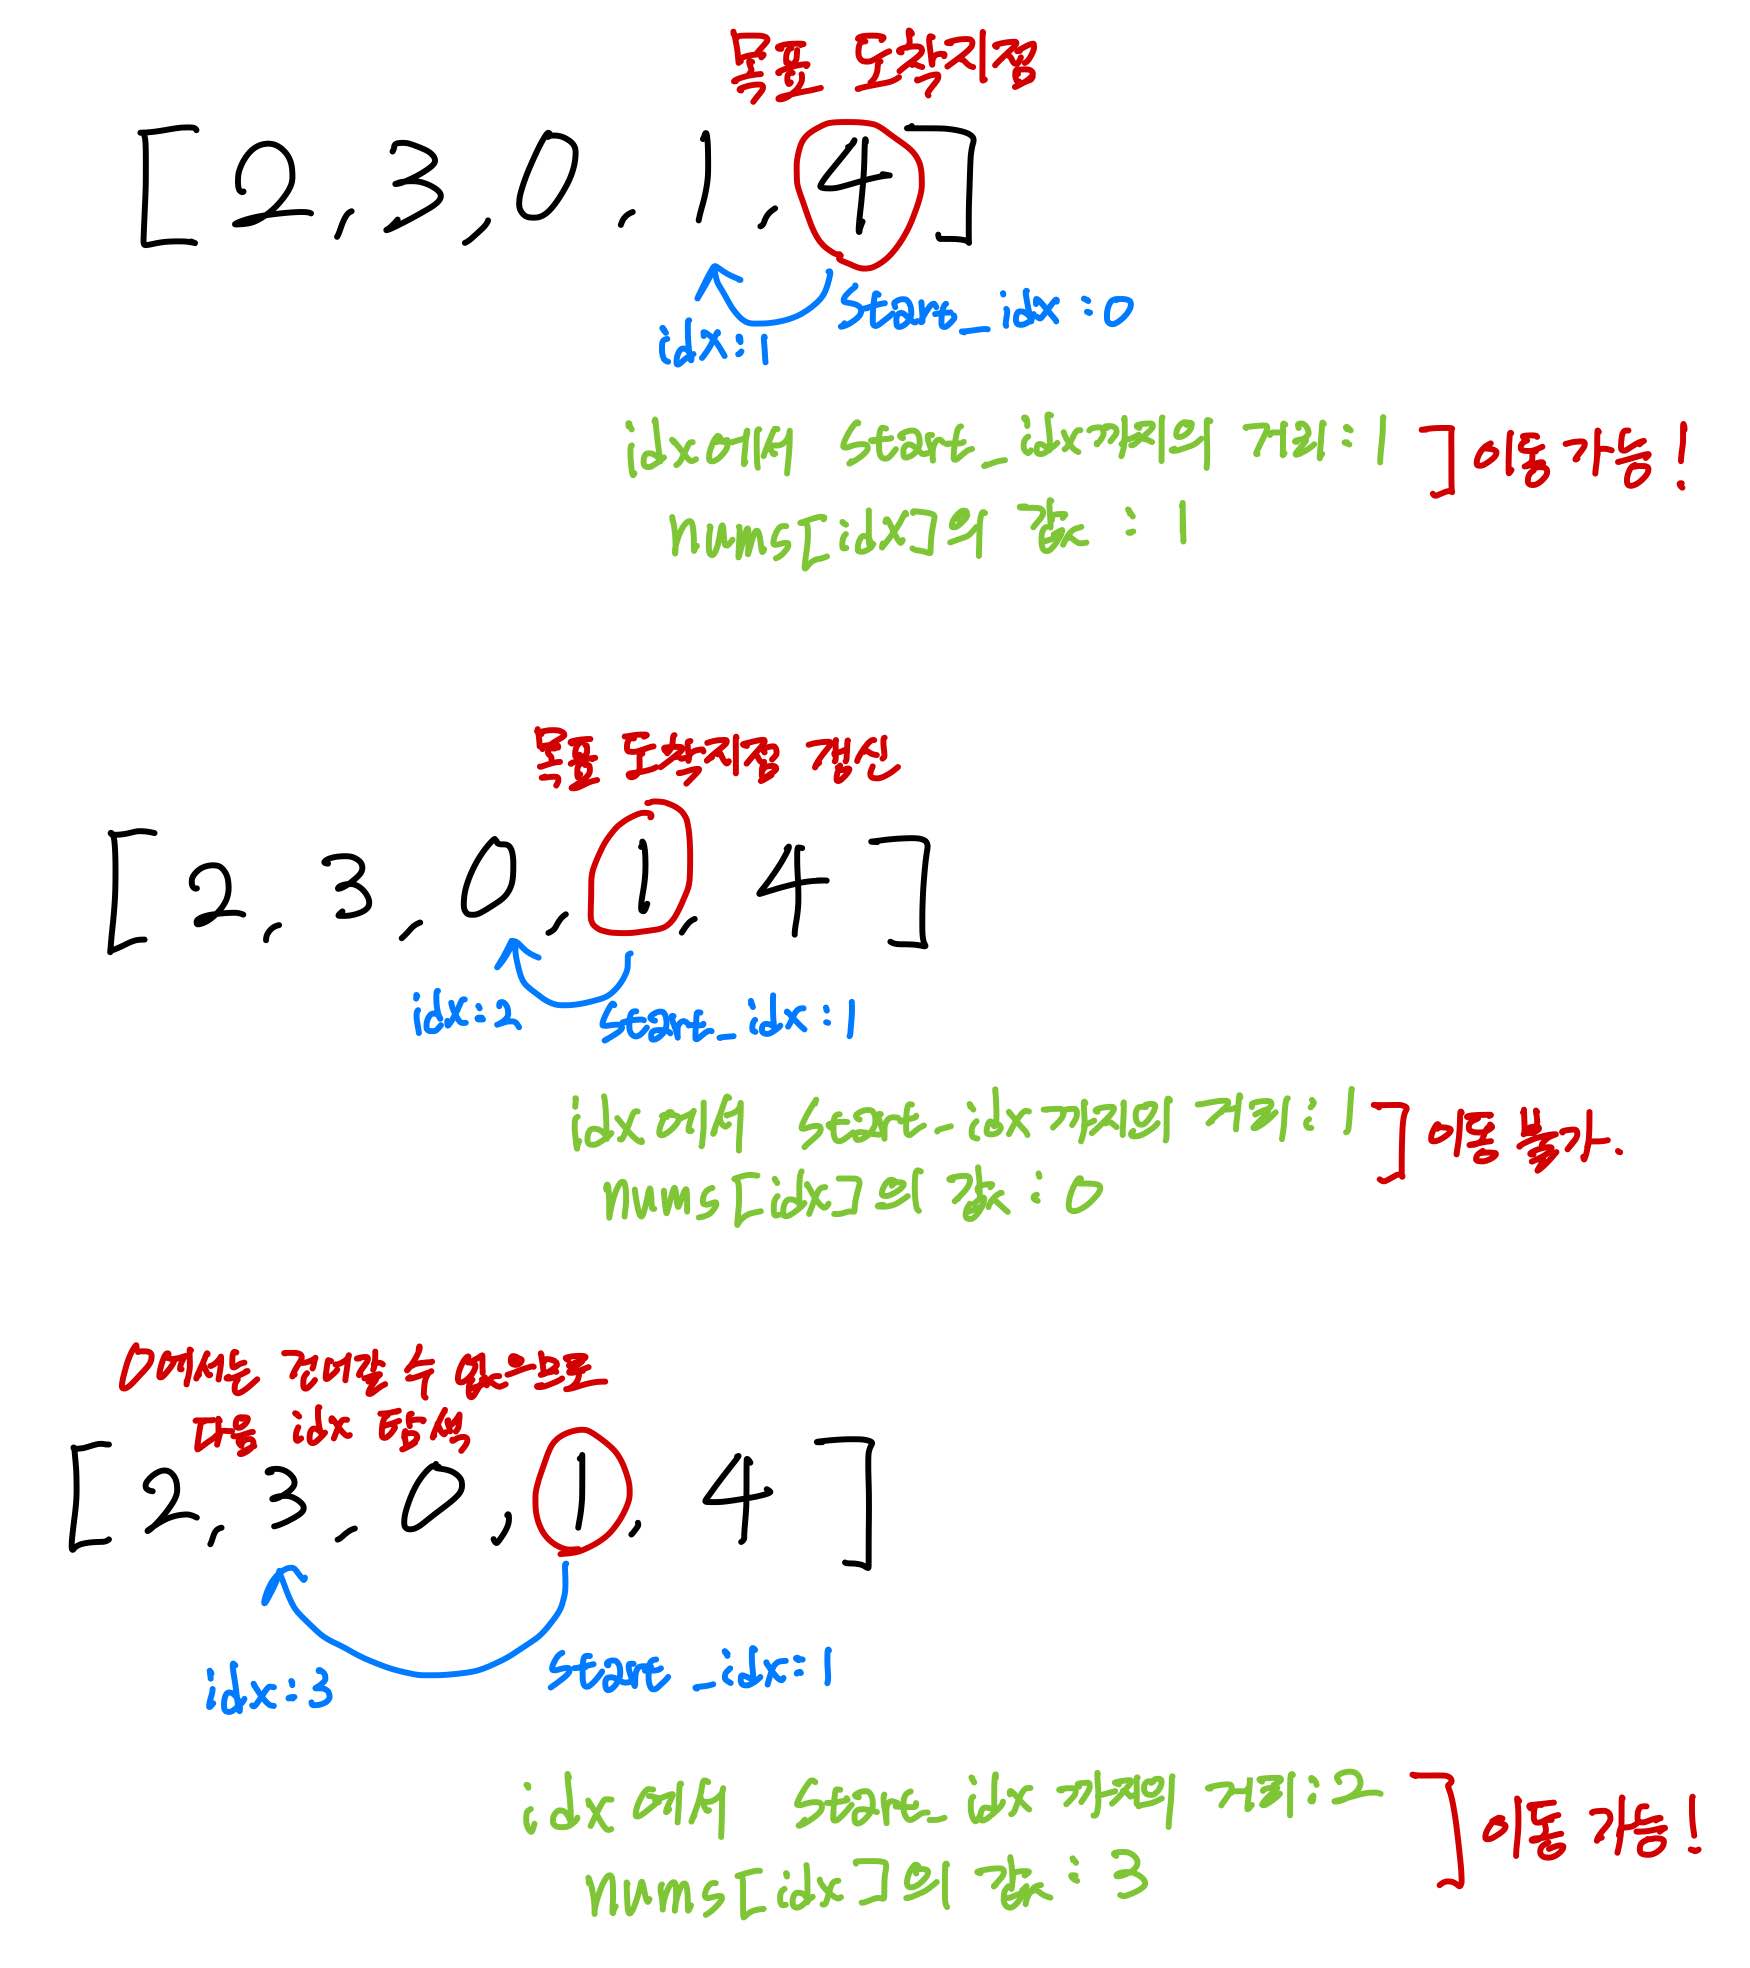 목표 도착지점
[2,3,0,1,4]
start_idx:0
idx:1
idx에서 start_idx까지의 거리:1 ] 이동 가능!
nums[idx]의 값 : 1
목표 도착지점 갱신
[2,3,0,1,4]
idx:2 start_idx:1
idx에서 start_idx까지의 거리:1 ] 이동 불가.
nums[idx]의 값:0
0에서는 건너갈 수 없으므로
다음 idx 탐색
[2,3,0,1,4]
idx:3 start_idx:1
idx에서 start_idx까지의 거리:2 ] 이동 가능!
nums[idx]의 값:3